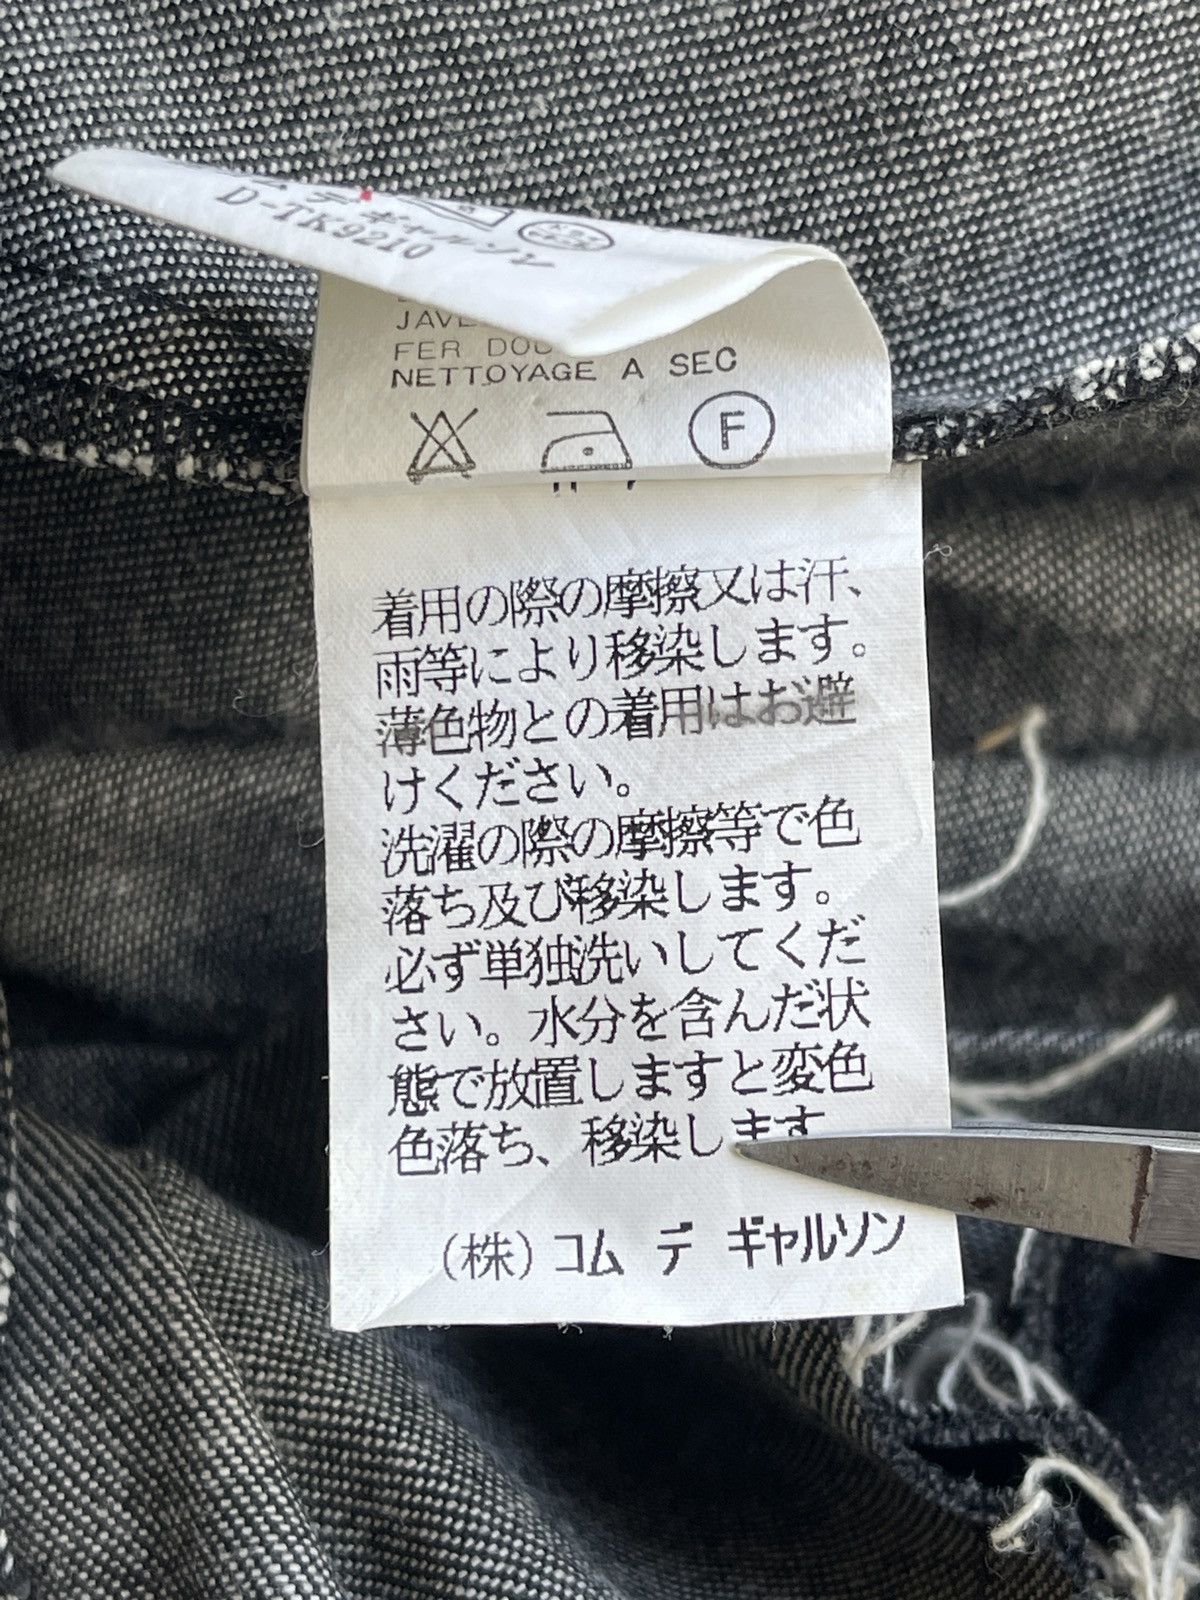 デ ギャルソン
D-TK9210
FER
NETTOYAGE A SEC
F
着用の際の摩擦又は汗、
雨等により移染します。
薄色物との着用はお避
けください。
洗濯の際の摩擦等で色
落ち及び移染します。
必ず単独洗いしてくだ
さい。水分を含んだ状
態で放置しますと変色
色落ち、移染します
(株) コム デ ギャルソン